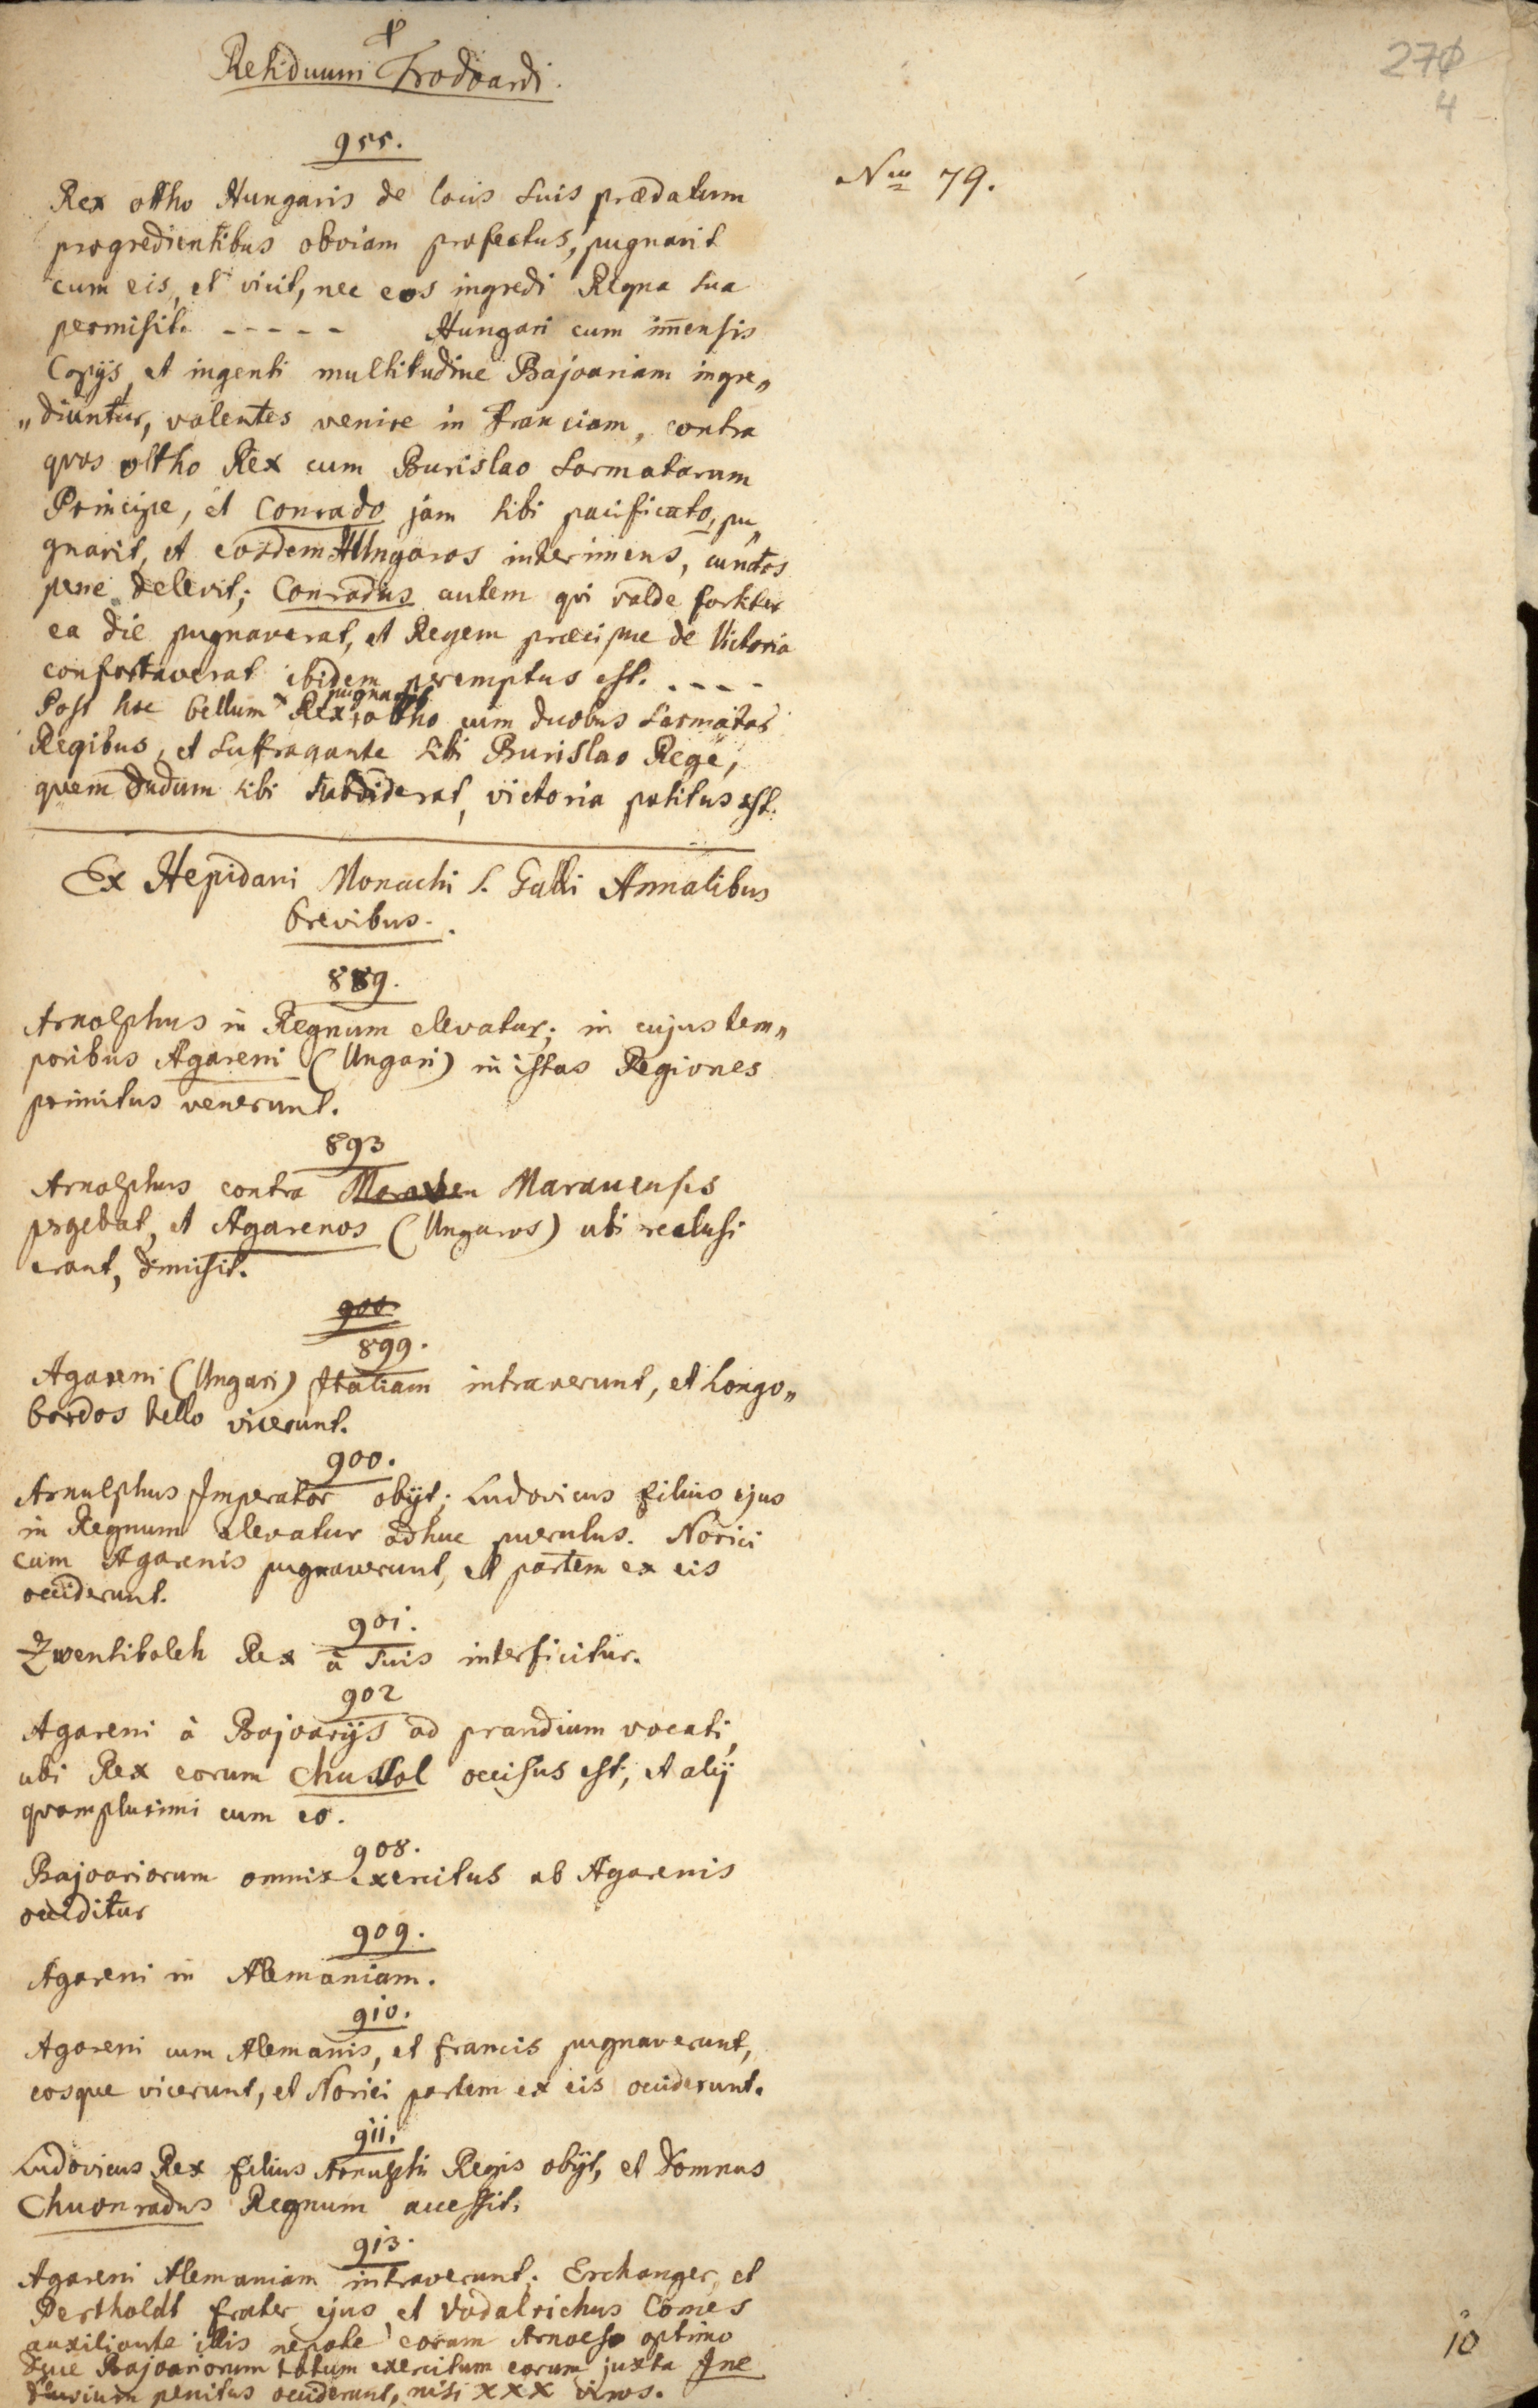 270
4
Residuum Frodoardi.
955.
Nus 79.
Rex ottho Hungaris de locis suis prædatum
progredientibus obviam profectus, pugnavit
cum eis, et vicit, nec eos ingredi Regna sua
permisit. - - - - - Hungari cum im̄ensis
Copijs, et ingenti multitudine Bajoariam ingre„
„diuntur, volentes venire in Franciam, contra
quos ottho Rex cum Burislao Sarmatarum
Principe, et Conrado jam sibi pacificato, pu„
gnavit, et eosdem Hungaros interimens, cunctos
pene delevit; Conradus autem qvi valde fortiter
ea die pugnaverat, et Regem præcipue de Victoria
confortaverat ibidem peremptus est. - - - -
Post hoc bellum pugnavit Rex ottho cum duobus Sarmatar
Regibus, et suffragante sibi Burislao Rege,
quem dudum sibi subdiderat, victoria potitus est.
Ex Hepidani Monachi S. Galli Annalibus
brevibus.
889.
Arnolphus in Regnum elevatur; in cujus tem„
poribus Agareni (Ungari) in istas Regiones
primitus venerunt.
893
Arnolphus contra Maravenses
pergebat, et Agarenos (Ungaros) ubi reclusi
erant, dimisit.
900.
899.
Agareni (Ungari) Italiam intraverunt, et Longo„
bardos bello vicerunt.
900.
Arnulphus Imperator obijt; Ludovicus filius ejus
in Regnum elevatur adhuc puerulus. Norici
cum Agarenis pugnaverunt, et partem ex eis
occiderunt.
901.
Zwentibolch Rex à suis interficitur.
902
Agareni à Bajoarijs ad prandium vocati,
ubi Rex eorum Chussol occisus est, et alij
quamplurimi cum eo.
908.
Bajoariorum omnis exercitus ab Agarenis
occiditur
909.
Agareni in Alemaniam.
910.
Agareni cum Alemanis, et francis pugnaverunt,
eosque vicerunt, et Norici partem ex eis occiderunt.
911.
Ludovicus Rex filius Arnulphi Regis obijt, et Domnus
Chuonradus Regnum accessit.
913.
Agareni Alemaniam intraverunt; Erchanger, et
Pertholdt frater ejus et Vodalrichus Comes
auxiliante illis nepote eorum Arnolfo optimo
Duce Bajoariorum totum exercitum eorum juxta Ine
fluvium penitus occiderunt, nisi XXX viros.
10